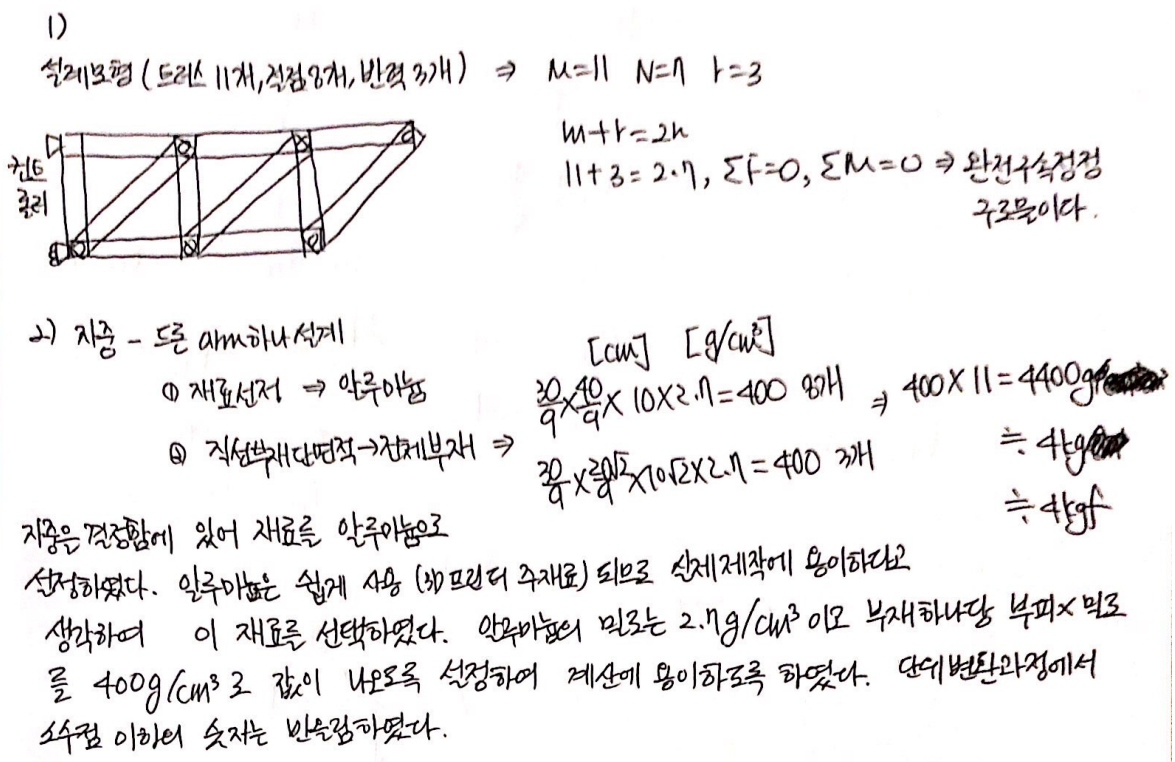 1)
설계모형 (트러스 11개, 절점 7개, 반력 3개) ⇒ M=11 N=7 r=3
m+r=2n
11+3=2·7, ΣF=0, ΣM=0 ⇒ 완전구속정정
구조물이다.
컨트롤러
2) 자중 - 드론 arm하나 설계
[cm] [g/cm³]
① 재료선정 ⇒ 알루미늄
30/9 × 40/9 × 10×2.7=400 8개 ⇒ 400×11=4400g
② 직선부재단면적→전체부재 ⇒
30/9 × × 10√2×2.7=400 3개
≒ 4kg
≒ 4kgf
자중을 결정함에 있어 재료를 알루미늄으로
설정하였다. 알루미늄은 쉽게 사용 (3D프린터 주재료) 되므로 실제제작에 용이하다고
생각하여 이 재료를 선택하였다. 알루미늄의 밀도는 2.7g/cm³ 이고 부재하나당 부피×밀도
를 400g/cm³로 값이 나오도록 설정하여 계산에 용이하도록 하였다. 단위변환과정에서
소수점 이하의 숫자는 반올림하였다.